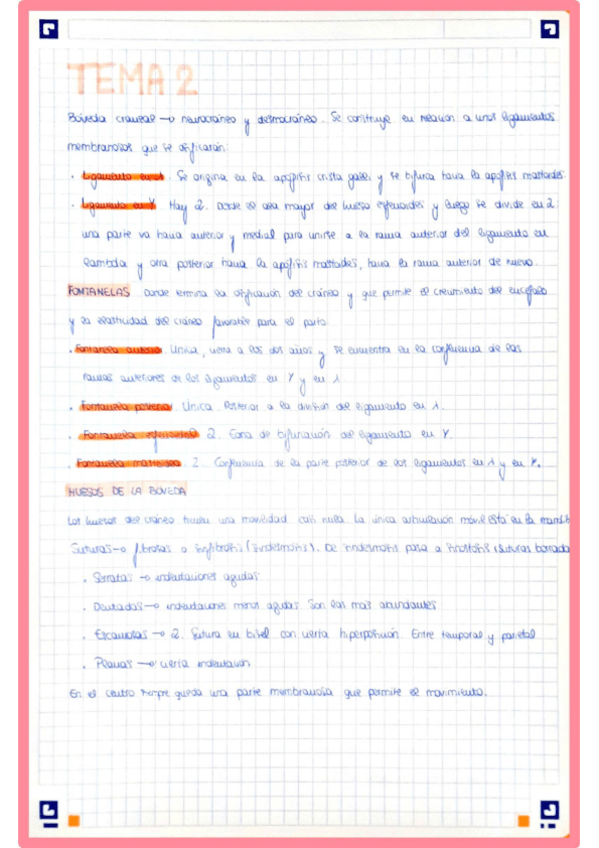 TEMA 2
Bóveda craneal → neurocráneo y desmocráneo. Se construye en relación a unos ligamentos
membranosos que se osificarán:
· Ligamento en λ. Se origina en la apófisis crista galli y se bifurca hacia la apófisis mastoides.
· Ligamento en Y. Hay 2. Desde el ala mayor del hueso esfenoides y luego se divide en 2:
una parte va hacia anterior y medial para unirse a la rama anterior del ligamento en
lambda y otra posterior hacia la apófisis mastoides, hacia la rama anterior de nuevo.
FONTANELAS Donde termina la osificación del cráneo y que permite el crecimiento del encéfalo
y la elasticidad del cráneo favorable para el parto.
· Fontanela anterior. Única, cierra a los dos años y se encuentra en la confluencia de las
ramas anteriores de los ligamentos en Y y en λ.
· Fontanela posterior. Única. Posterior a la división del ligamento en λ.
· Fontanela esfenoidal. 2. Zona de bifurcación del ligamento en Y.
· Fontanela mastoidea. 2. Confluencia de la parte posterior de los ligamentos en λ y en Y.
HUESOS DE LA BÓVEDA
Los huesos del cráneo tienen una movilidad casi nula. La única articulación móvil está en la mandíb
Suturas → fibrosas o sinfibrosis (sindesmosis). De sindesmosis pasa a sinostosis (suturas borrada
· Serratas → indentaciones agudas
· Dentadas → indentaciones menos agudas. Son las más abundantes
· Escamosas → 2. Sutura en bisel con cierta hiperposición. Entre temporal y parietal
· Planas → cierta indentación
En el centro siempre queda una parte membranosa que permite el movimiento.